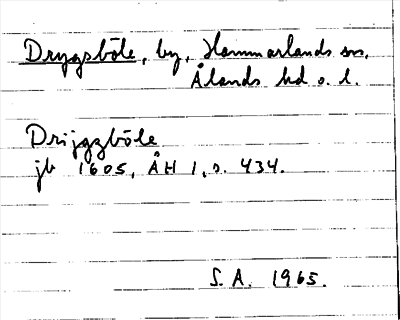 Dryggsböle, by, Hammarlands sn,
Ålands hd o. l.
Drijgzböle
jb 1605, ÅH 1, s. 434.
S.A. 1965.